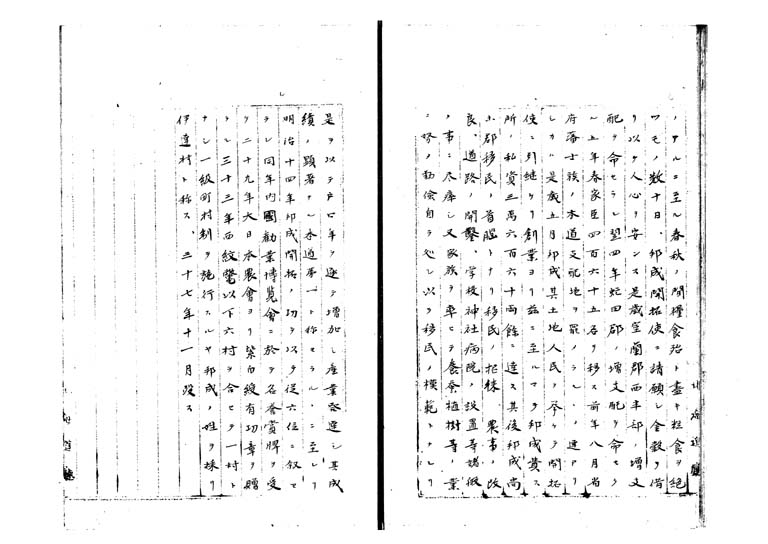 ノアルニ至ル春秋ノ間糧食殆ト盡キ粒食ヲ絶
ツモノ数十日、邦成開拓使ニ請願シ金穀ヲ借
リ以テ人心ヲ安ンス是歳室蘭郡西半部ノ増支
配ヲ命セラレ翌四年虻田郡ノ増支配ヲ命セラ
ル五年春家臣四百六十五名ヲ移ス前年八月省
府藩士族ノ本道支配地ヲ罷ノラレ
シカハ是歳五月邦成其土地人民ヲ尽ケテ開拓
使ニ引継ケリ創業ヨリ茲ニ至ルマテ邦成費ス
所ノ私費三萬六百六十両餘ニ達ス其後邦成尚
ホ郡移民ノ首脳トナリ移民ノ招募農事ノ改
良、道路ノ開鑿、学校神社病院ノ設置等
ノ事ニ尽瘁シ又家族ヲ率ヒテ養蚕植樹等ノ業
ニ努ノ勤倹自ラ処シ以テ移民ノ模範トナレリ
是ヲ以テ戸口年ヲ逐テ増加シ産業発達シ其成
績ノ顕著ナル本道第一ト称セラルヽニ至レリ
明治十四年邦成開拓ノ功ヲ以テ従六位ニ叙セ
ラレ同年内國勧業博覧会ニ於テ名誉賞牌ヲ受
ケ二十九年大日本農會ヨリ紫白綬有功章ヲ贈
ラル三十三年西紋鼈以下六村ヲ合セテ一村ト
ナシ一級町村制ヲ施行スルヤ邦成ノ姓ヲ採リ
伊達村ト称ス、三十七年十一月歿ス
北海道廳